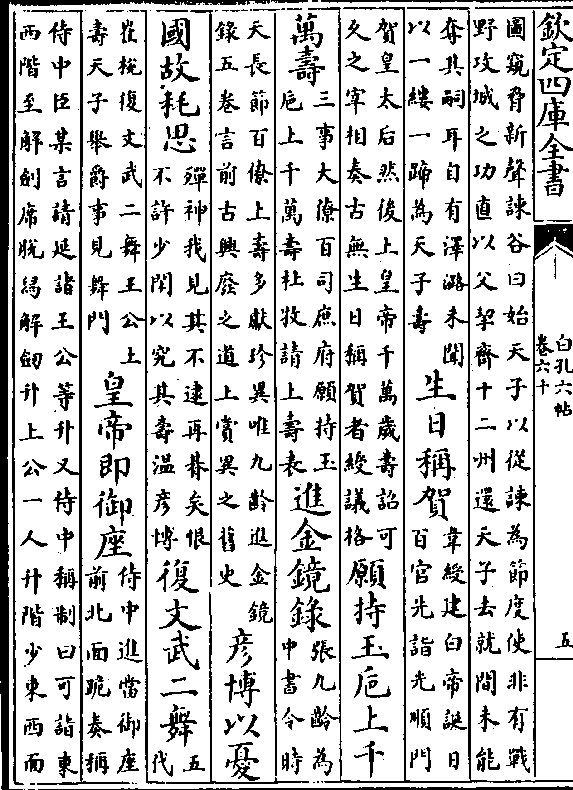 欽定四庫全書
白孔六帖
卷六十
五
圖窺脅新聲諫谷曰始天子以從諫為節度使非有戰
野攻城之功直以父挈齊十二州還天子去就間未能
奪其嗣耳自有澤潞未聞
以一縷一蹄為天子壽
生日稱賀
韋綬建白帝誕日
百官先詣光順門
賀皇太后然後上皇帝千萬歲壽詔可
久之宰相奏古無生日稱賀者綬議格
願持玉巵上千
萬壽
三事大僚百司庶府願持玉
巵上千萬壽杜牧請上壽表
進金鏡錄
張九齡為
中書令時
天長節百僚上壽多獻珍異唯九齡進金鏡
錄五卷言前古興廢之道上賞異之舊史
彥博以憂
國故耗思
殫神我見其不逮再朞矣恨
不許少閑以究其壽溫彥博
復文武二舞
五
代
崔梲復文武二舞王公上
壽天子舉爵事見舞門
皇帝即御座
侍中進當御座
前北面跪奏稱
侍中臣某言請延諸王公等升又侍中稱制曰可詣東
西階至解劍席脫舄解劍升上公一人升階少東西面